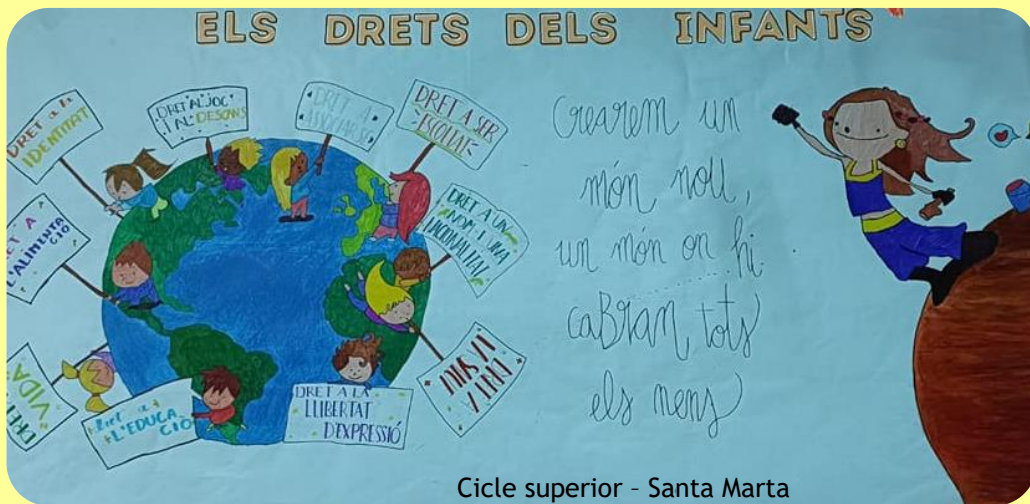 ELS DRETS DELS INFANTS
DRET a la
IDENTITAT
DRET AL JOC
I AL DESCANS
DRET A
ASSOCIAR-SE
DRET A SER
ESCOLTAT
DRET A UN
NOM I UNA
NACIONALITAT
DRET A
L'ALIMENTA
CIÓ
DRET
VIDA
Dret a
L'EDUCA
CIÓ
DRET A LA
LLIBERTAT
D'EXPRESSIÓ
DRET A
LA SALUT
Crearem un
món nou,
un món on hi
caBran tots
els nens
Cicle superior – Santa Marta